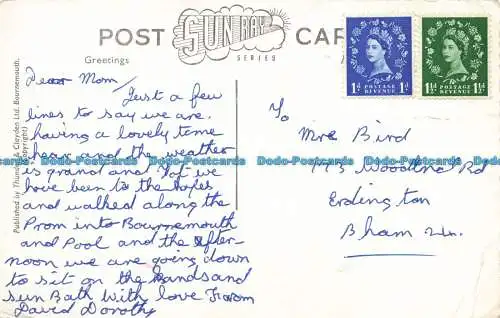 POST CARD
SUN RAY
SERIES
Greetings
1D 1D
POSTAGE
REVENUE
1½D 1½D
POSTAGE
REVENUE
Published by Thunder & Clayden Ltd. Bournemouth.
(Copyright)
Dear Mom/
Just a few
lines to say we are
having a lovely time
hear and the weather
is grand and hot we
have been to the
and walked along the
Prom into Bournemouth
and Pool and the After-
noon we are going down
to sit on the sand and
sun Bath with love From
David Dorothy
To
Mrs Bird
Rd
Erdington
Bham 24.
Dodo-Postcards Dodo-Postcards Dodo-Postcards Dodo-Postcards